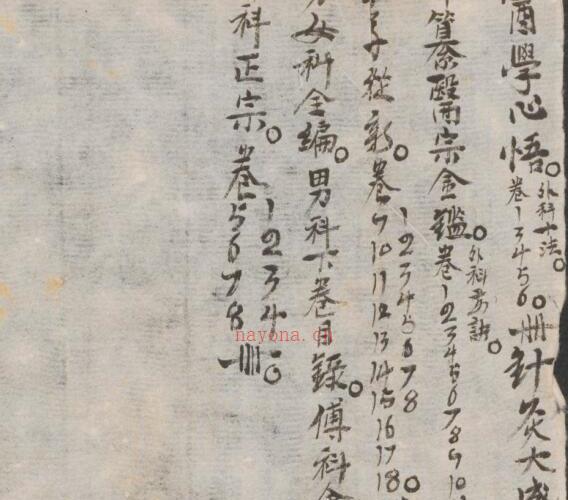 學心悟。外科十法。卷123456。冊針灸大
纂醫宗金鑑。外科要訣。卷12345678910
從新。卷12345678
9101112131415161718。
女科全編。男科下卷目錄。傅科
科正宗。卷1234
5678冊。
nayona.cn